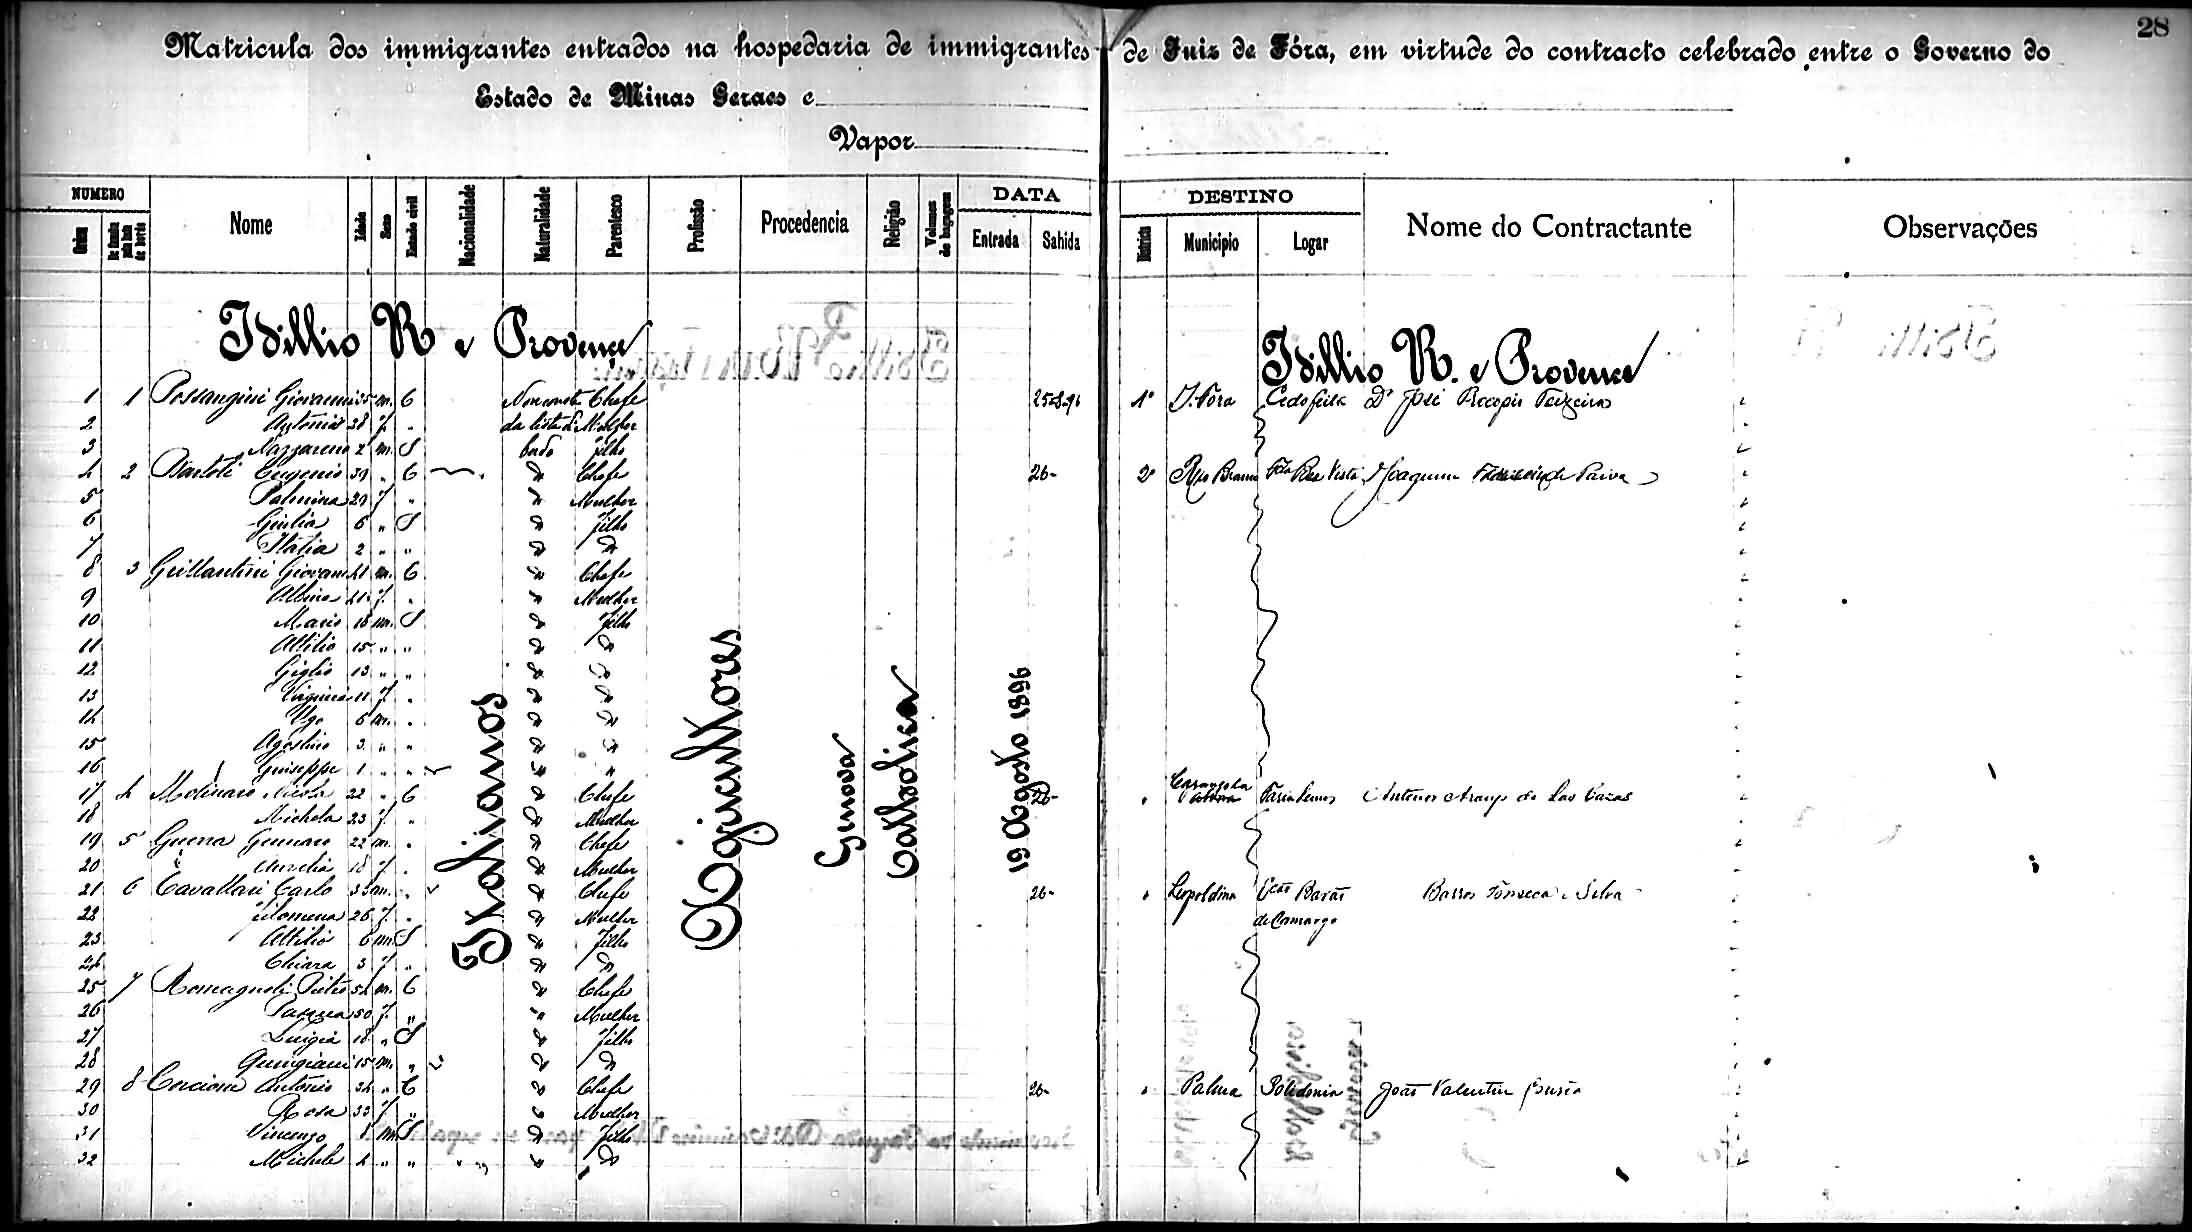 28
Matricula dos immigrantes entrados na hospedaria de immigrantes de Juiz de Fóra, em virtude do contracto celebrado entre o Governo do
Estado de Minas Geraes e
Vapor
NUMERO
Ordem
Nome
Idade
Sexo
Estado civil
Nacionalidade
Naturalidade
Parentesco
Profissão
Procedencia
Religião
Volumes de bagagem
DATA
Entrada
Sahida
DESTINO
Districto
Municipio
Logar
Nome do Contractante
Observações
Idillio R e Provence
Idillio R. e Provence
1 1 Possangini Giovanni 35 m. C Non consta Chefe 25-8-96 1º J. Fóra Dr José Procopio Teixeira
2 Antonia 28 f. " da lista de Mulher
3 Nazzareno 2 m. S bordo filho
4 2 Bartoli Eugenio 39 " C " Chefe 26- 2º Rio Branco Fda Boa Vista Joaquim de Paiva
5 Palmina 29 f " " Mulher
6 Giulia 6 " S " filho
7 Italia 2 " " " "
8 3 Grillantini Giovani 41 m. C " Chefe
9 Albina 41 f. " " Mulher
10 Mario 18 m. S " filho
11 Attilio 15 " " " "
12 Giglio 13 " " " "
13 Virginia 11 f. " " "
14 Ugo 6 m. " " "
15 Agostino 3 " " " "
16 Guiseppe 1 " " " "
17 4 Molinaro Nicola 22 " C " Chefe 26- " Carangola Faria Lemos Antenor Araujo de
18 Michela 23 f. " " Mulher
19 5 Guerra Gennaro 22 m. " " Chefe
20 Aurelia 18 f. " " Mulher
21 6 Cavallari Carlo 33 m. " " Chefe 26- " Leopoldina Eção Barão Barros Fonseca e Silva
22 Filomena 26 f. " " Mulher de Camargo
23 Attilio 6 m S " filho
24 Chiara 3 f " " "
25 7 Romagnoli Pietro 54 m. C " Chefe
26 50 f. " " Mulher
27 Luigia 18 " S " filho
28 15 m. " " "
29 8 Corcione Antonio 34 " C " Chefe 26- " Palma João Valentim
30 Rosa 33 f " " Mulher
31 Vincenzo 8 m S " filho
32 Michele 4 " " " "
Italianos
Agricultores
Genova
Catholica
19 Agosto 1896